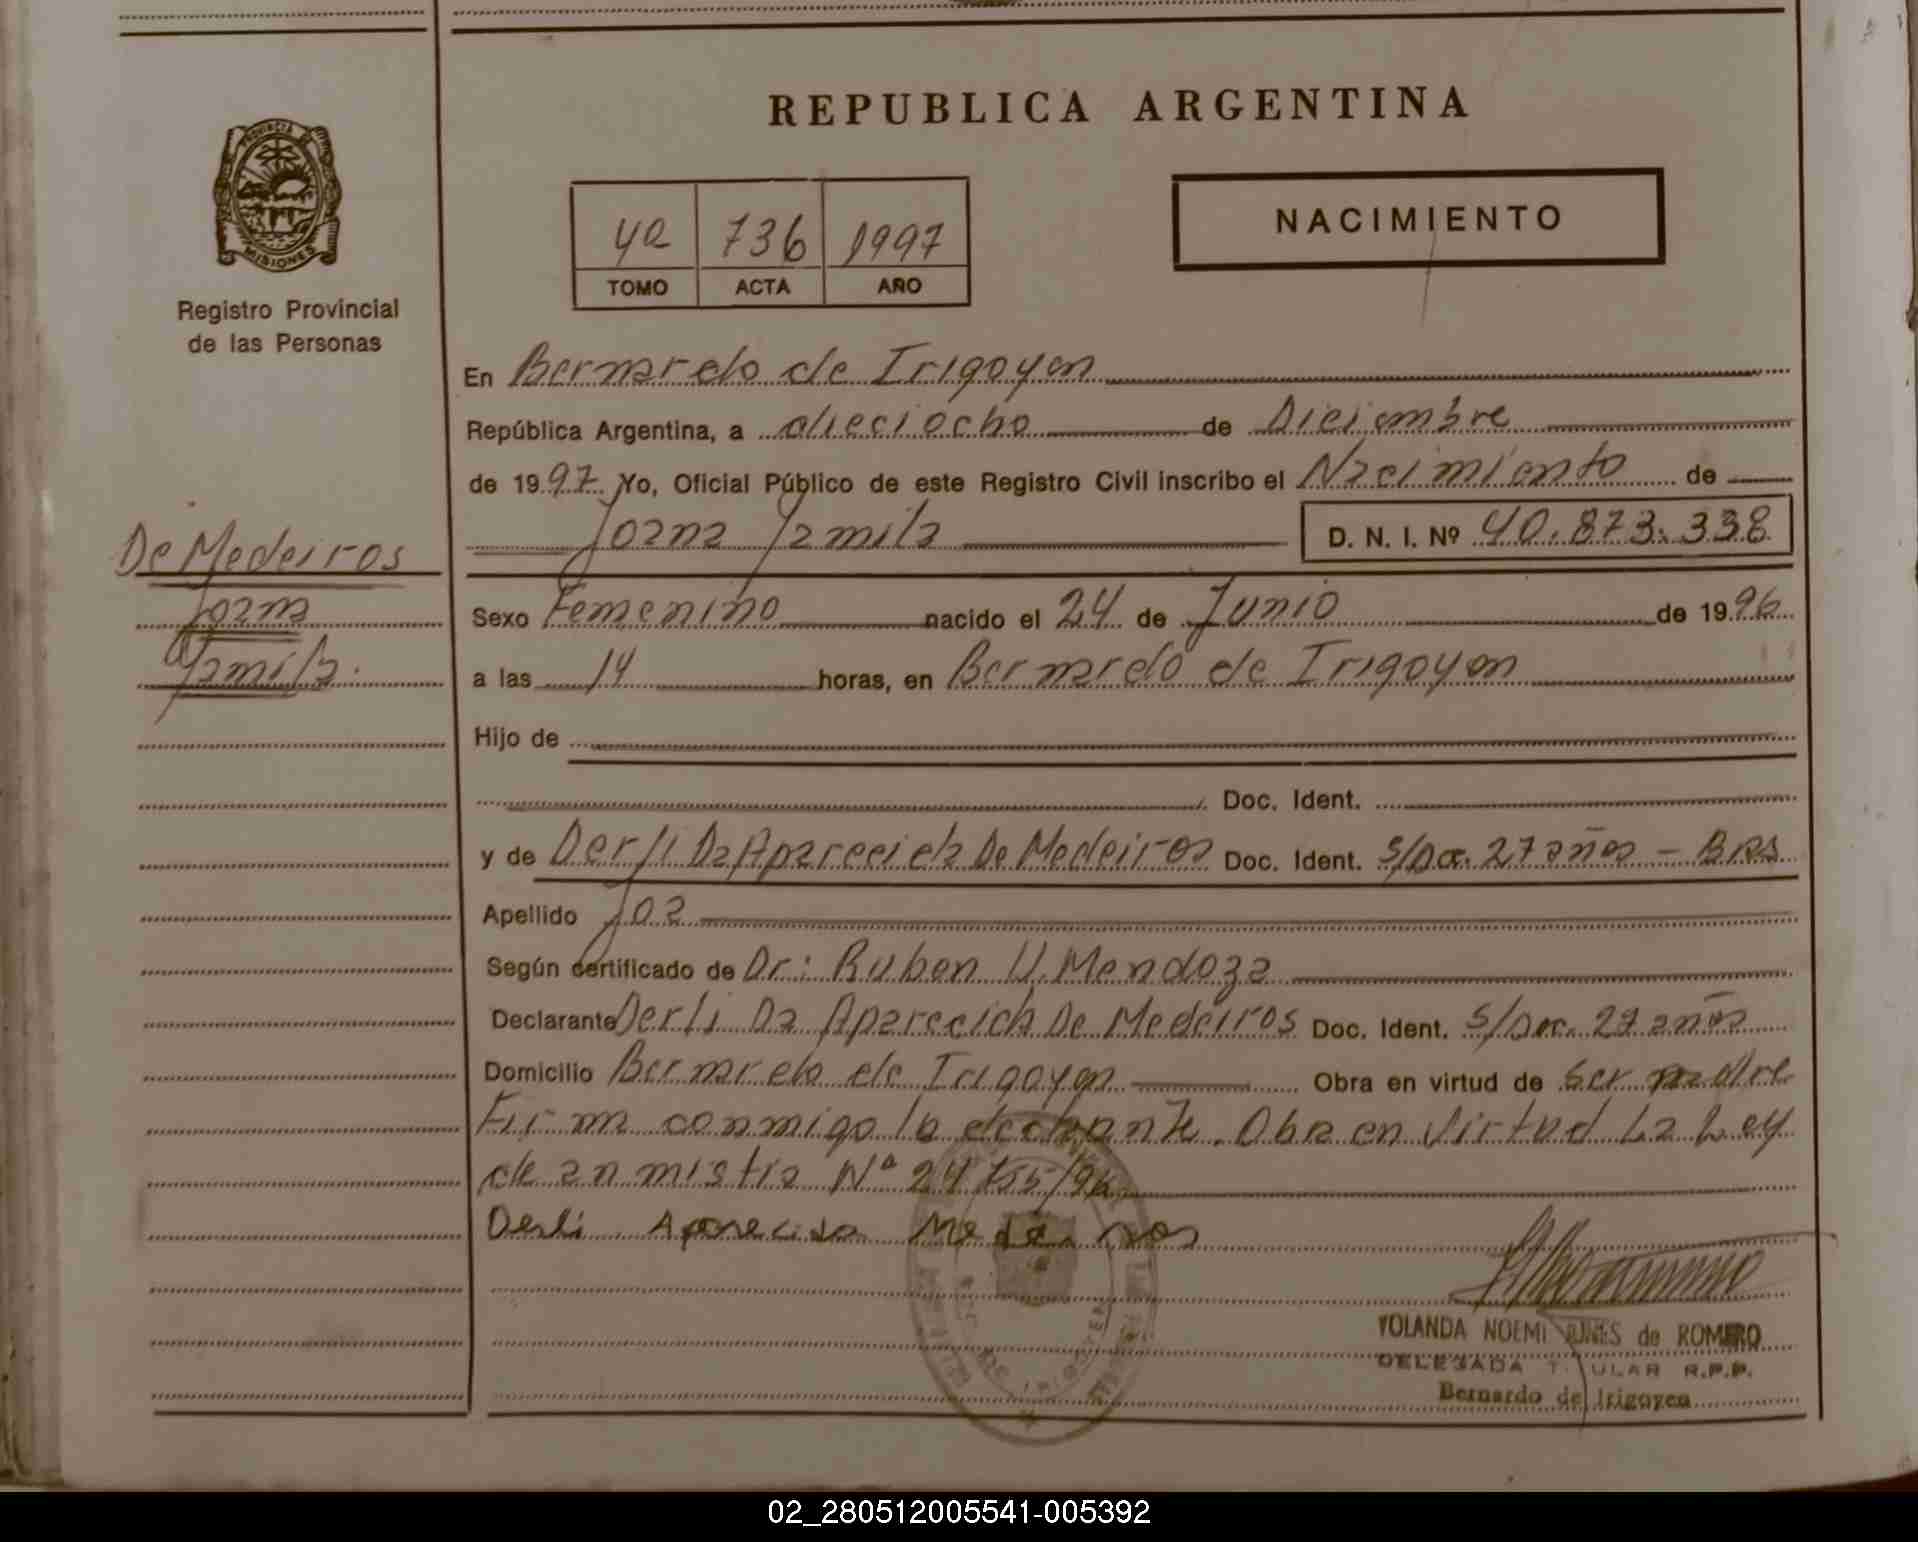 REPUBLICA ARGENTINA
PROVINCIA DE MISIONES
Registro Provincial
de las Personas
4º 736 1997
TOMO ACTA AÑO
NACIMIENTO
En Bernardo de Irigoyen
República Argentina, a dieciocho de Diciembre
de 1997 Yo, Oficial Público de este Registro Civil inscribo el Nacimiento de
Joana Yamila D. N. I. Nº 40.873.338
De Medeiros
Joana
Yamila.
Sexo Femenino nacido el 24 de Junio de 1996
a las 14 horas, en Bernardo de Irigoyen
Hijo de
Doc. Ident.
y de Derli Da Aparecida De Medeiros Doc. Ident. S/Doc. 27 años - BRS
Apellido
Según certificado de Dr: Ruben U. Mendoza
Declarante Derli Da Aparecida De Medeiros Doc. Ident. S/Doc. 27 años
Domicilio Bernardo de Irigoyen Obra en virtud de Ser madre
Firma conmigo la declarante. Obra en Virtud La Ley
de anmistia Nº 24755/96
Derli Aparecida Medeiros
YOLANDA NOEMI de ROMERO
DELEGADA TITULAR R.P.P.
Bernardo de Irigoyen
02_280512005541-005392